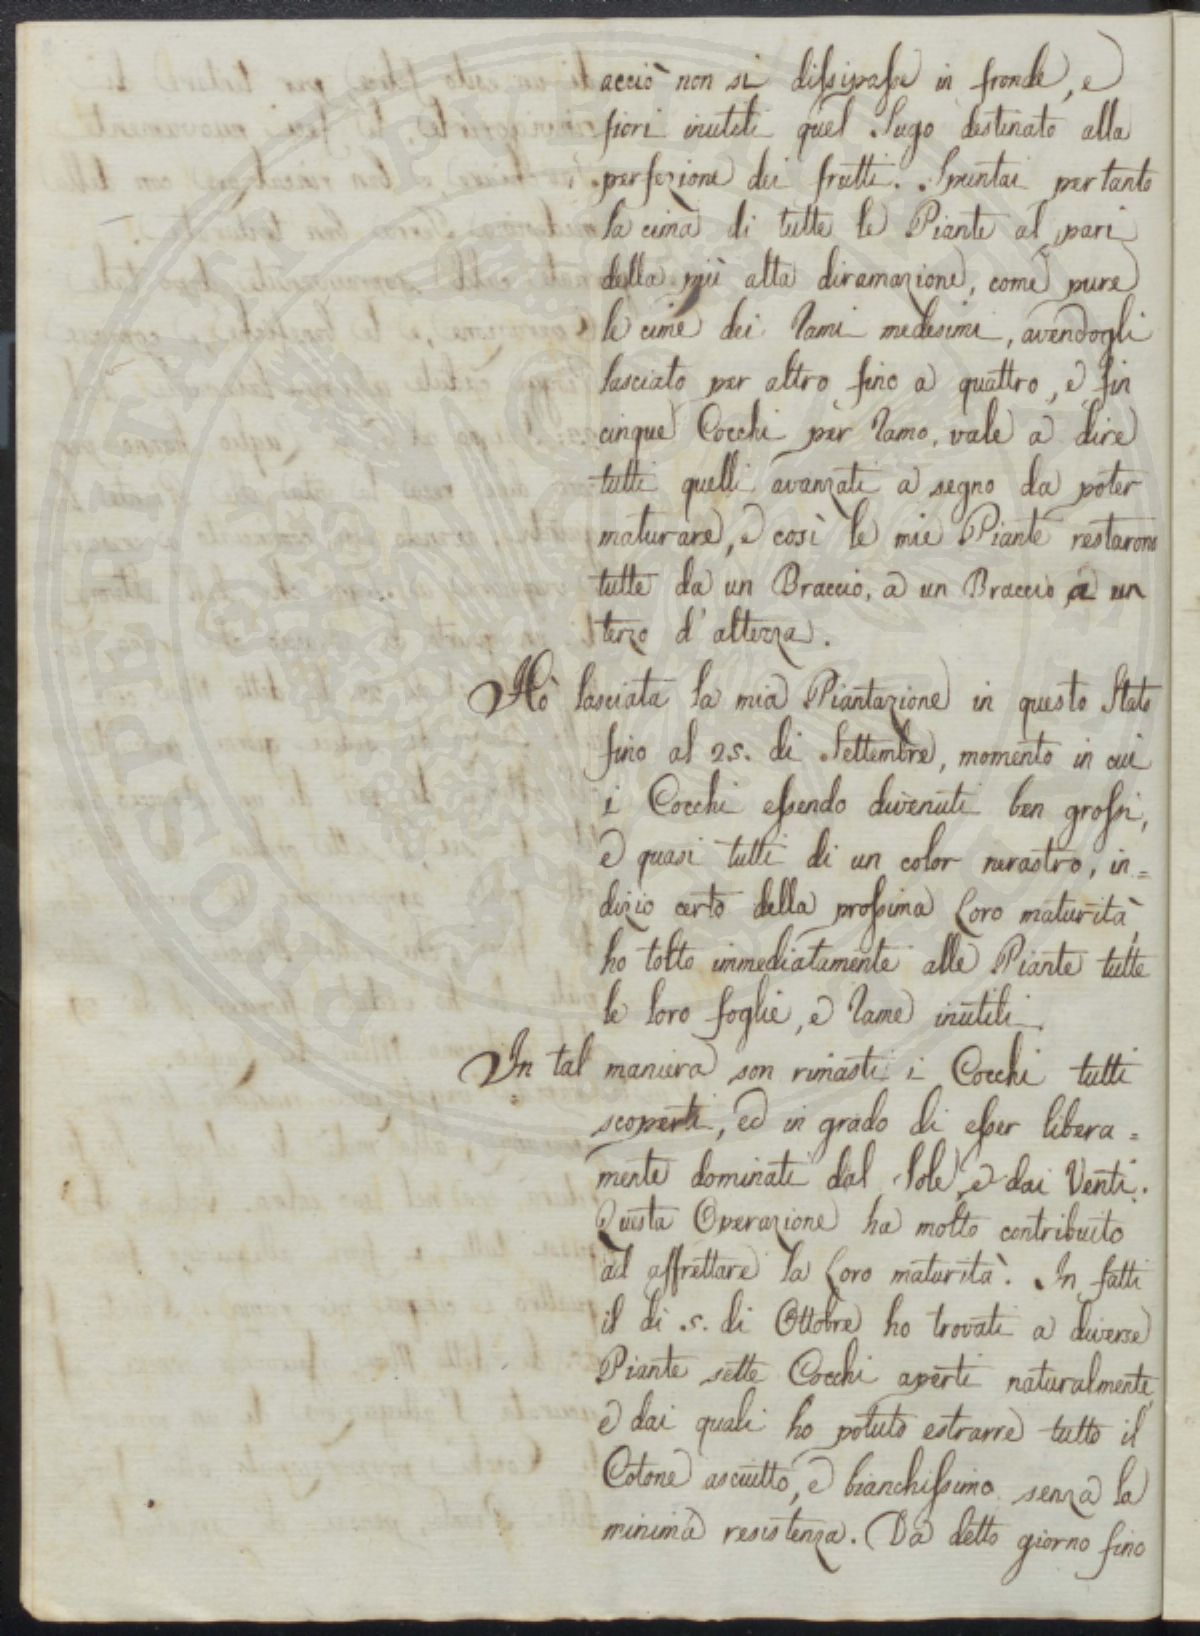 acciò non si dissipasse in fronde, e
fiori inutili quel sugo destinato alla
perfezione dei frutti. Spuntai pertanto
la cima di tutte le Piante al pari
della più alta diramazione, come pure
le cime dei Rami medesimi, avendogli
lasciato per altro fino a quattro, e fin
cinque Cocchi per Ramo, vale a dire
tutti quelli avanzati a segno da poter
maturare, e così le mie Piante restarono
tutte da un Braccio, a un Braccio a un
terzo d'altezza.
Hò lasciata la mia Piantazione in questo Stato
fino al 25. di Settembre, momento in cui
i Cocchi essendo divenuti ben grossi,
e quasi tutti di un color nerastro, in=
dizio certo della prossima Loro maturità,
ho tolto immediatamente alle Piante tutte
le loro foglie, e Rame inutili.
In tal maniera son rimasti i Cocchi tutti
scoperti, ed in grado di esser libera=
mente dominati dal Sole, e dai Venti.
Questa Operazione ha molto contribuito
ad affrettare la Loro maturità. In fatti
il dì 5. di Ottobre ho trovati a diverse
Piante sette Cocchi aperti naturalmente,
e dai quali ho potuto estrarre tutto il
Cotone asciutto, e bianchissimo senza la
minima resistenza. Da detto giorno fino